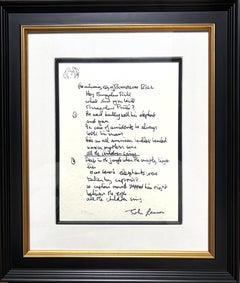 The continuing story of Bungalow Bill
Hey Bungalow Bill
what did you kill
Bungalow Bill?
① He went hunting with his elephant
and gun
In case of accidents he always
took his mum
he's an all american bullet headed
saxon mothers son
all the children sing
② Deep in the jungle where the mighty tiger
lies
were elephants were
taken by
so captain marvel zapped him right
between the eyes
all the children sing
John Lennon